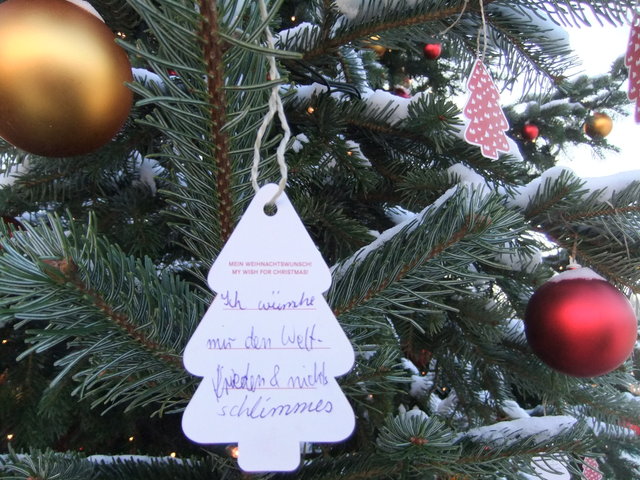 MEIN WEIHNACHTSWUNSCH!
MY WISH FOR CHRISTMAS!
Ich wünsche
mir den Welt-
frieden & nichts
schlimmes